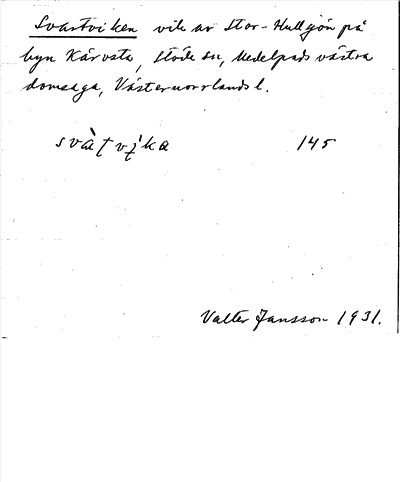 Svartviken vik av Stor-Hullsjön på
byn Kärvsta, Stöde sn, Medelpads västra
domsaga, Västernorrlands l.
svàt vi̩'ka 145
Valter Jansson 1931.